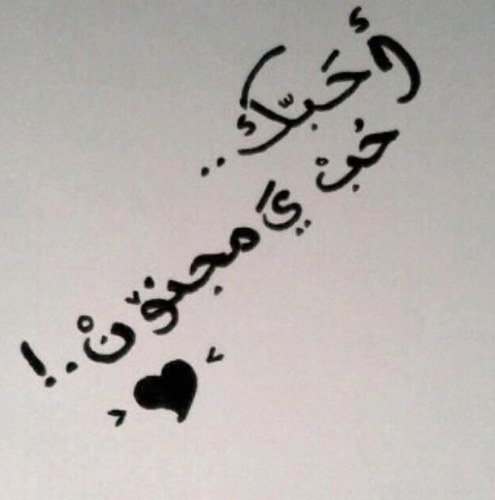 أحَبّك..
حُبْ يَ مجنوْنْ.!